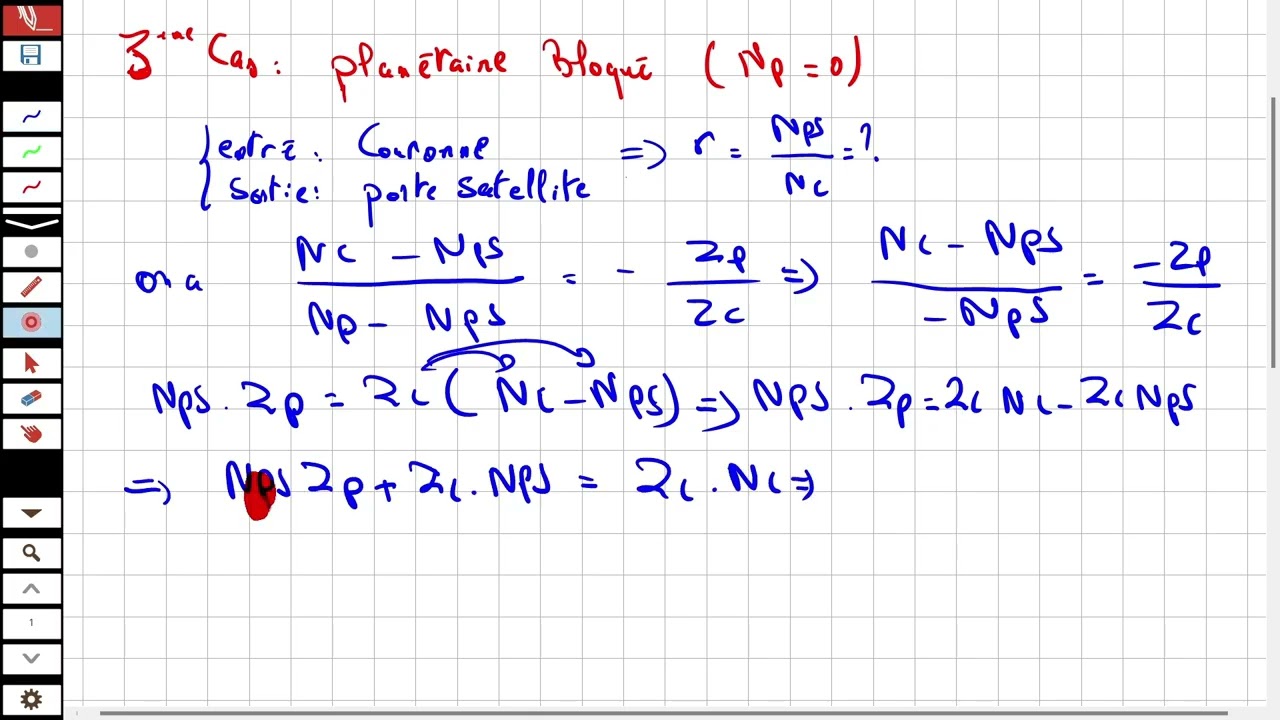 3ème Cas : planétaire Bloqué ( Np = 0 )
{ entré : Couronne ⇒ r = Nps / Nc = ?
{ Sortie : porte satellite
on a (Nc - Nps) / (Np - Nps) = - Zp / Zc ⇒ (Nc - Nps) / (- Nps) = - Zp / Zc
Nps . Zp = Zc ( Nc - Nps ) ⇒ Nps . Zp = Zc Nc - Zc Nps
⇒ Nps Zp + Zc . Nps = Zc . Nc ⇒
1